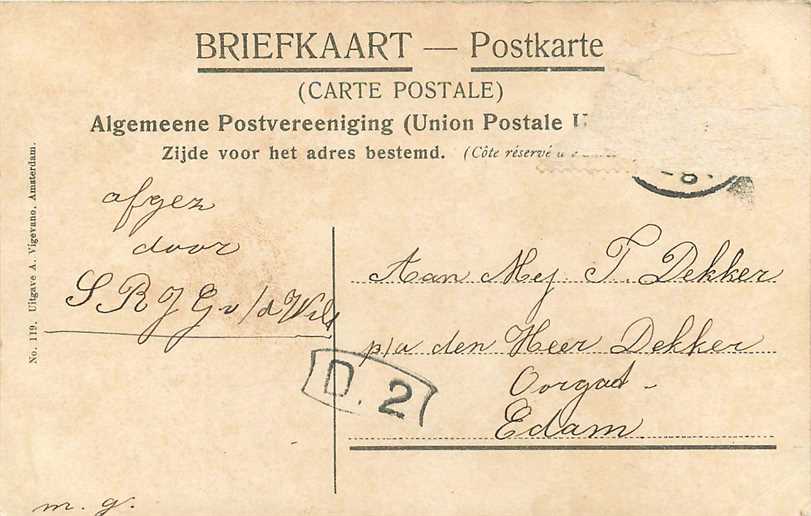 BRIEFKAART — Postkarte
(CARTE POSTALE)
Algemeene Postvereeniging (Union Postale
Zijde voor het adres bestemd. (Côte réservé
No. 119. Uitgave A. Vigevano. Amsterdam.
afgez
door
S R J G v/d Wilt
Aan Mej. T. Dekker
p/a den Heer Dekker
Oorgat
Edam.
D. 2
8
m. g.